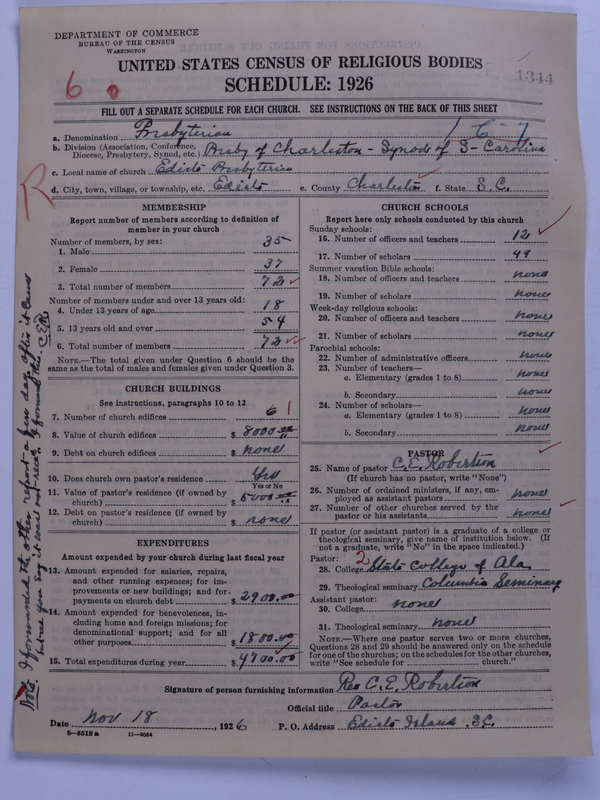 DEPARTMENT OF COMMERCE
BUREAU OF THE CENSUS
WASHINGTON
UNITED STATES CENSUS OF RELIGIOUS BODIES
SCHEDULE: 1926
1344
6 0
FILL OUT A SEPARATE SCHEDULE FOR EACH CHURCH. SEE INSTRUCTIONS ON THE BACK OF THIS SHEET
1 C-7
a. Denomination Presbyterian
b. Division (Association, Conference, Diocese, Presbytery, Synod, etc.) Presby of Charleston - Synod of S- Carolina
c. Local name of church Edisto Presbyterian
d. City, town, village, or township, etc. Edisto e. County Charleston f. State S.C.
R
MEMBERSHIP
Report number of members according to definition of
member in your church
Number of members, by sex:
1. Male 35
2. Female 37
3. Total number of members 72
Number of members under and over 13 years old:
4. Under 13 years of age 18
5. 13 years old and over 54
6. Total number of members 72
NOTE.—The total given under Question 6 should be the
same as the total of males and females given under Question 3.
CHURCH BUILDINGS
See instructions, paragraphs 10 to 12
7. Number of church edifices 1
8. Value of church edifices $ 8000
9. Debt on church edifices $ none
10. Does church own pastor's residence Yes
Yes or No
11. Value of pastor's residence (if owned by
church) $ 5000
12. Debt on pastor's residence (if owned by
church) $ none
EXPENDITURES
Amount expended by your church during last fiscal year
13. Amount expended for salaries, repairs,
and other running expenses; for im-
provements or new buildings; and for
payments on church debt $ 2900.00
14. Amount expended for benevolences, in-
cluding home and foreign missions; for
denominational support; and for all
other purposes $ 1800.00
15. Total expenditures during year $ 4700.00
CHURCH SCHOOLS
Report here only schools conducted by this church
Sunday schools:
16. Number of officers and teachers 12
17. Number of scholars 49
Summer vacation Bible schools:
18. Number of officers and teachers none
19. Number of scholars none
Week-day religious schools:
20. Number of officers and teachers none
21. Number of scholars none
Parochial schools:
22. Number of administrative officers none
23. Number of teachers—
a. Elementary (grades 1 to 8) none
b. Secondary none
24. Number of scholars—
a. Elementary (grades 1 to 8) none
b. Secondary none
PASTOR
25. Name of pastor C.E. Robertson
(If church has no pastor, write "None")
26. Number of ordained ministers, if any, em-
ployed as assistant pastors none
27. Number of other churches served by the
pastor or his assistants none
If pastor (or assistant pastor) is a graduate of a college or
theological seminary, give name of institution below. (If
not a graduate, write "No" in the space indicated.)
Pastor: 2
28. College State College of Ala.
29. Theological seminary Columbia Seminary
Assistant pastor:
30. College none
31. Theological seminary none
NOTE.—Where one pastor serves two or more churches,
Questions 28 and 29 should be answered only on the schedule
for one of the churches; on the schedules for the other churches,
write "See schedule for church."
Note. I forwarded the other report a few days after it came
but as you say it was not rec'd I forward this. C.E.R.
Signature of person furnishing information Rev C. E. Robertson
Official title Pastor
Date Nov 18, 1926 P. O. Address Edisto Island, S.C.
8-5518 a 11-9034